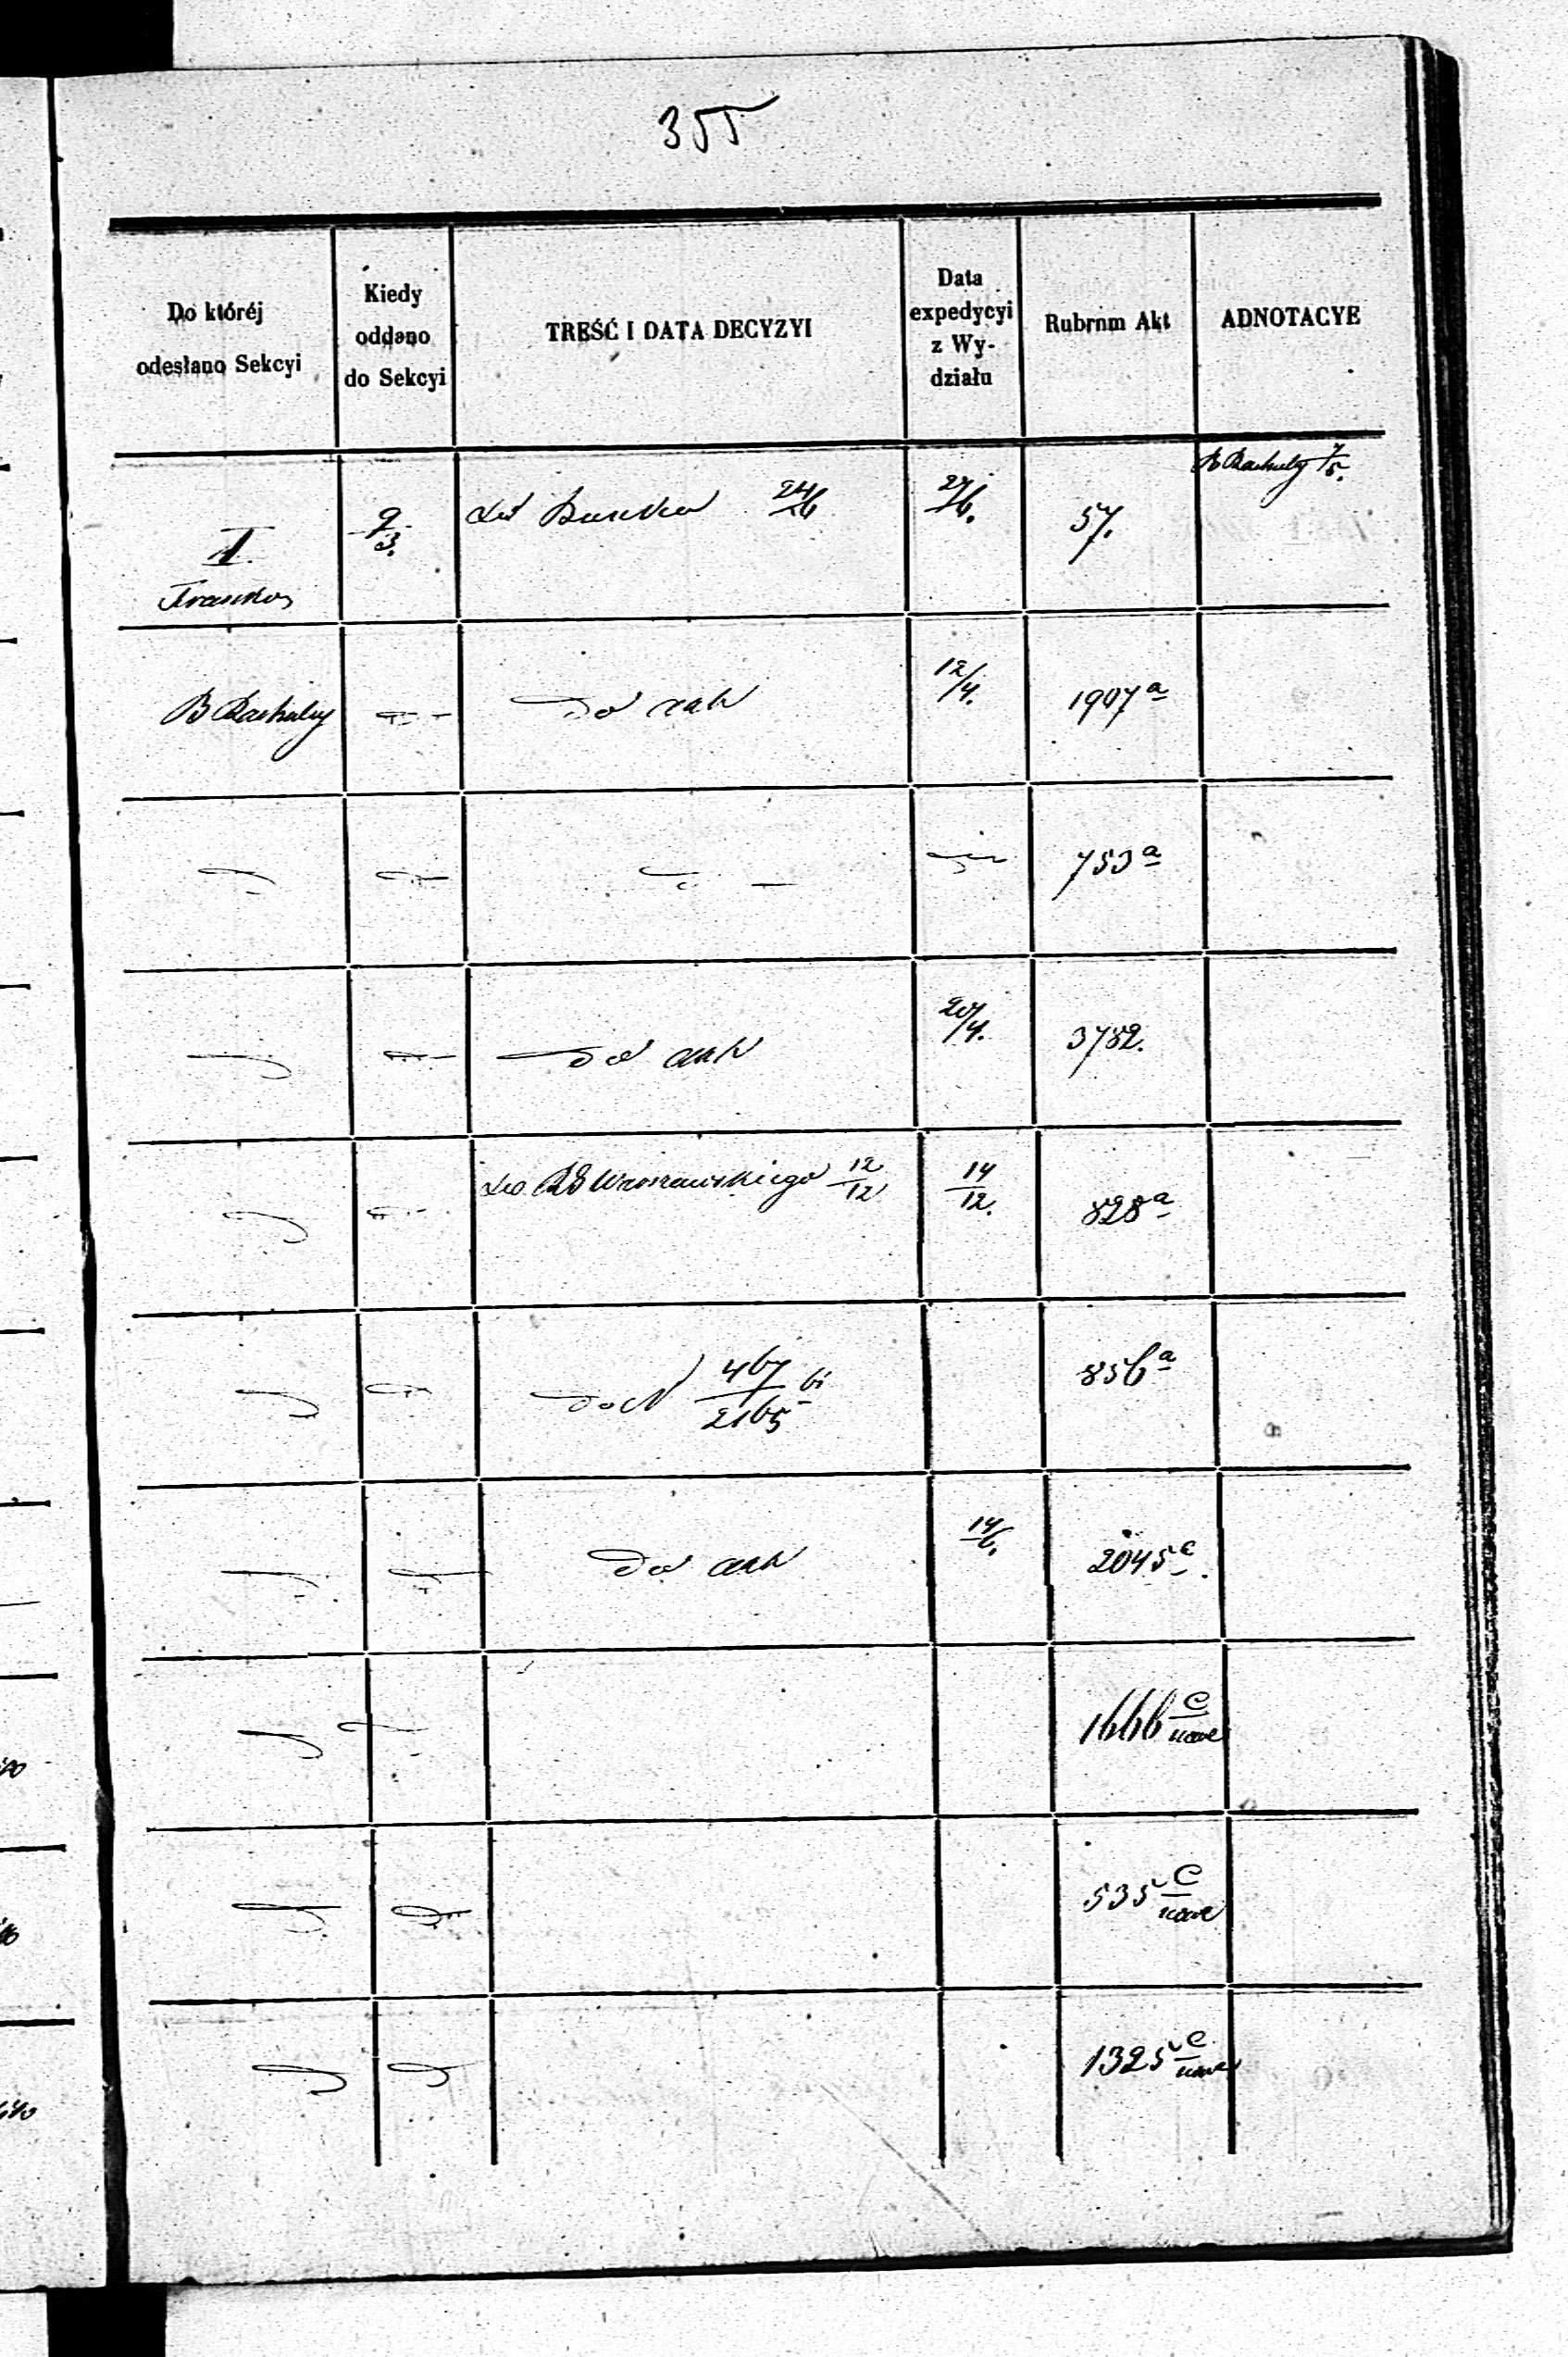 355
Do któréj
odesłano Sekcyi
Kiedy
oddano
do Sekcyi
TREŚĆ I DATA DECYZYI
Data
expedycyi
z Wy-
działu
Rubrum Akt
ADNOTACYE
II
9/3.
do Banku 24/6
27/6.
57.
B Rachuby 7/5.
B Rachuby
do akt
12/4.
1907 a
753 a
do akt
20/4.
3782.
do RG Warszawskiego 12/12
14/12.
828 a
do N 467/2165
856 a
do akt
14/6.
2045 c.
1666 C/nowe
535 C/nowe
1325 C/nowe